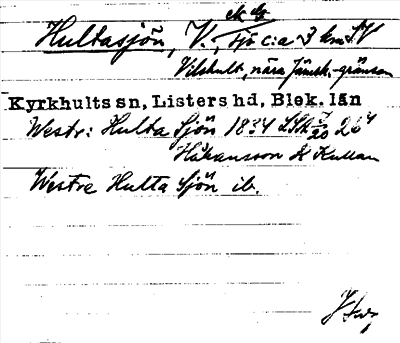 ek bg
Hultasjön, V., sjö c:a 3 km SV
Vilshult, nära Jämsh.-gränsen
Kyrkhults sn, Listers hd, Blek. län
Westr: Hulta Sjön 1834 LSA 267
Håkansson St Kullan
Westra Hulta Sjön ib.